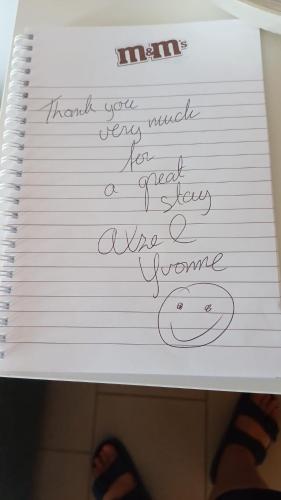 m&m's
Thank you
very much
for
a great
stay
Axzel
Yvonne